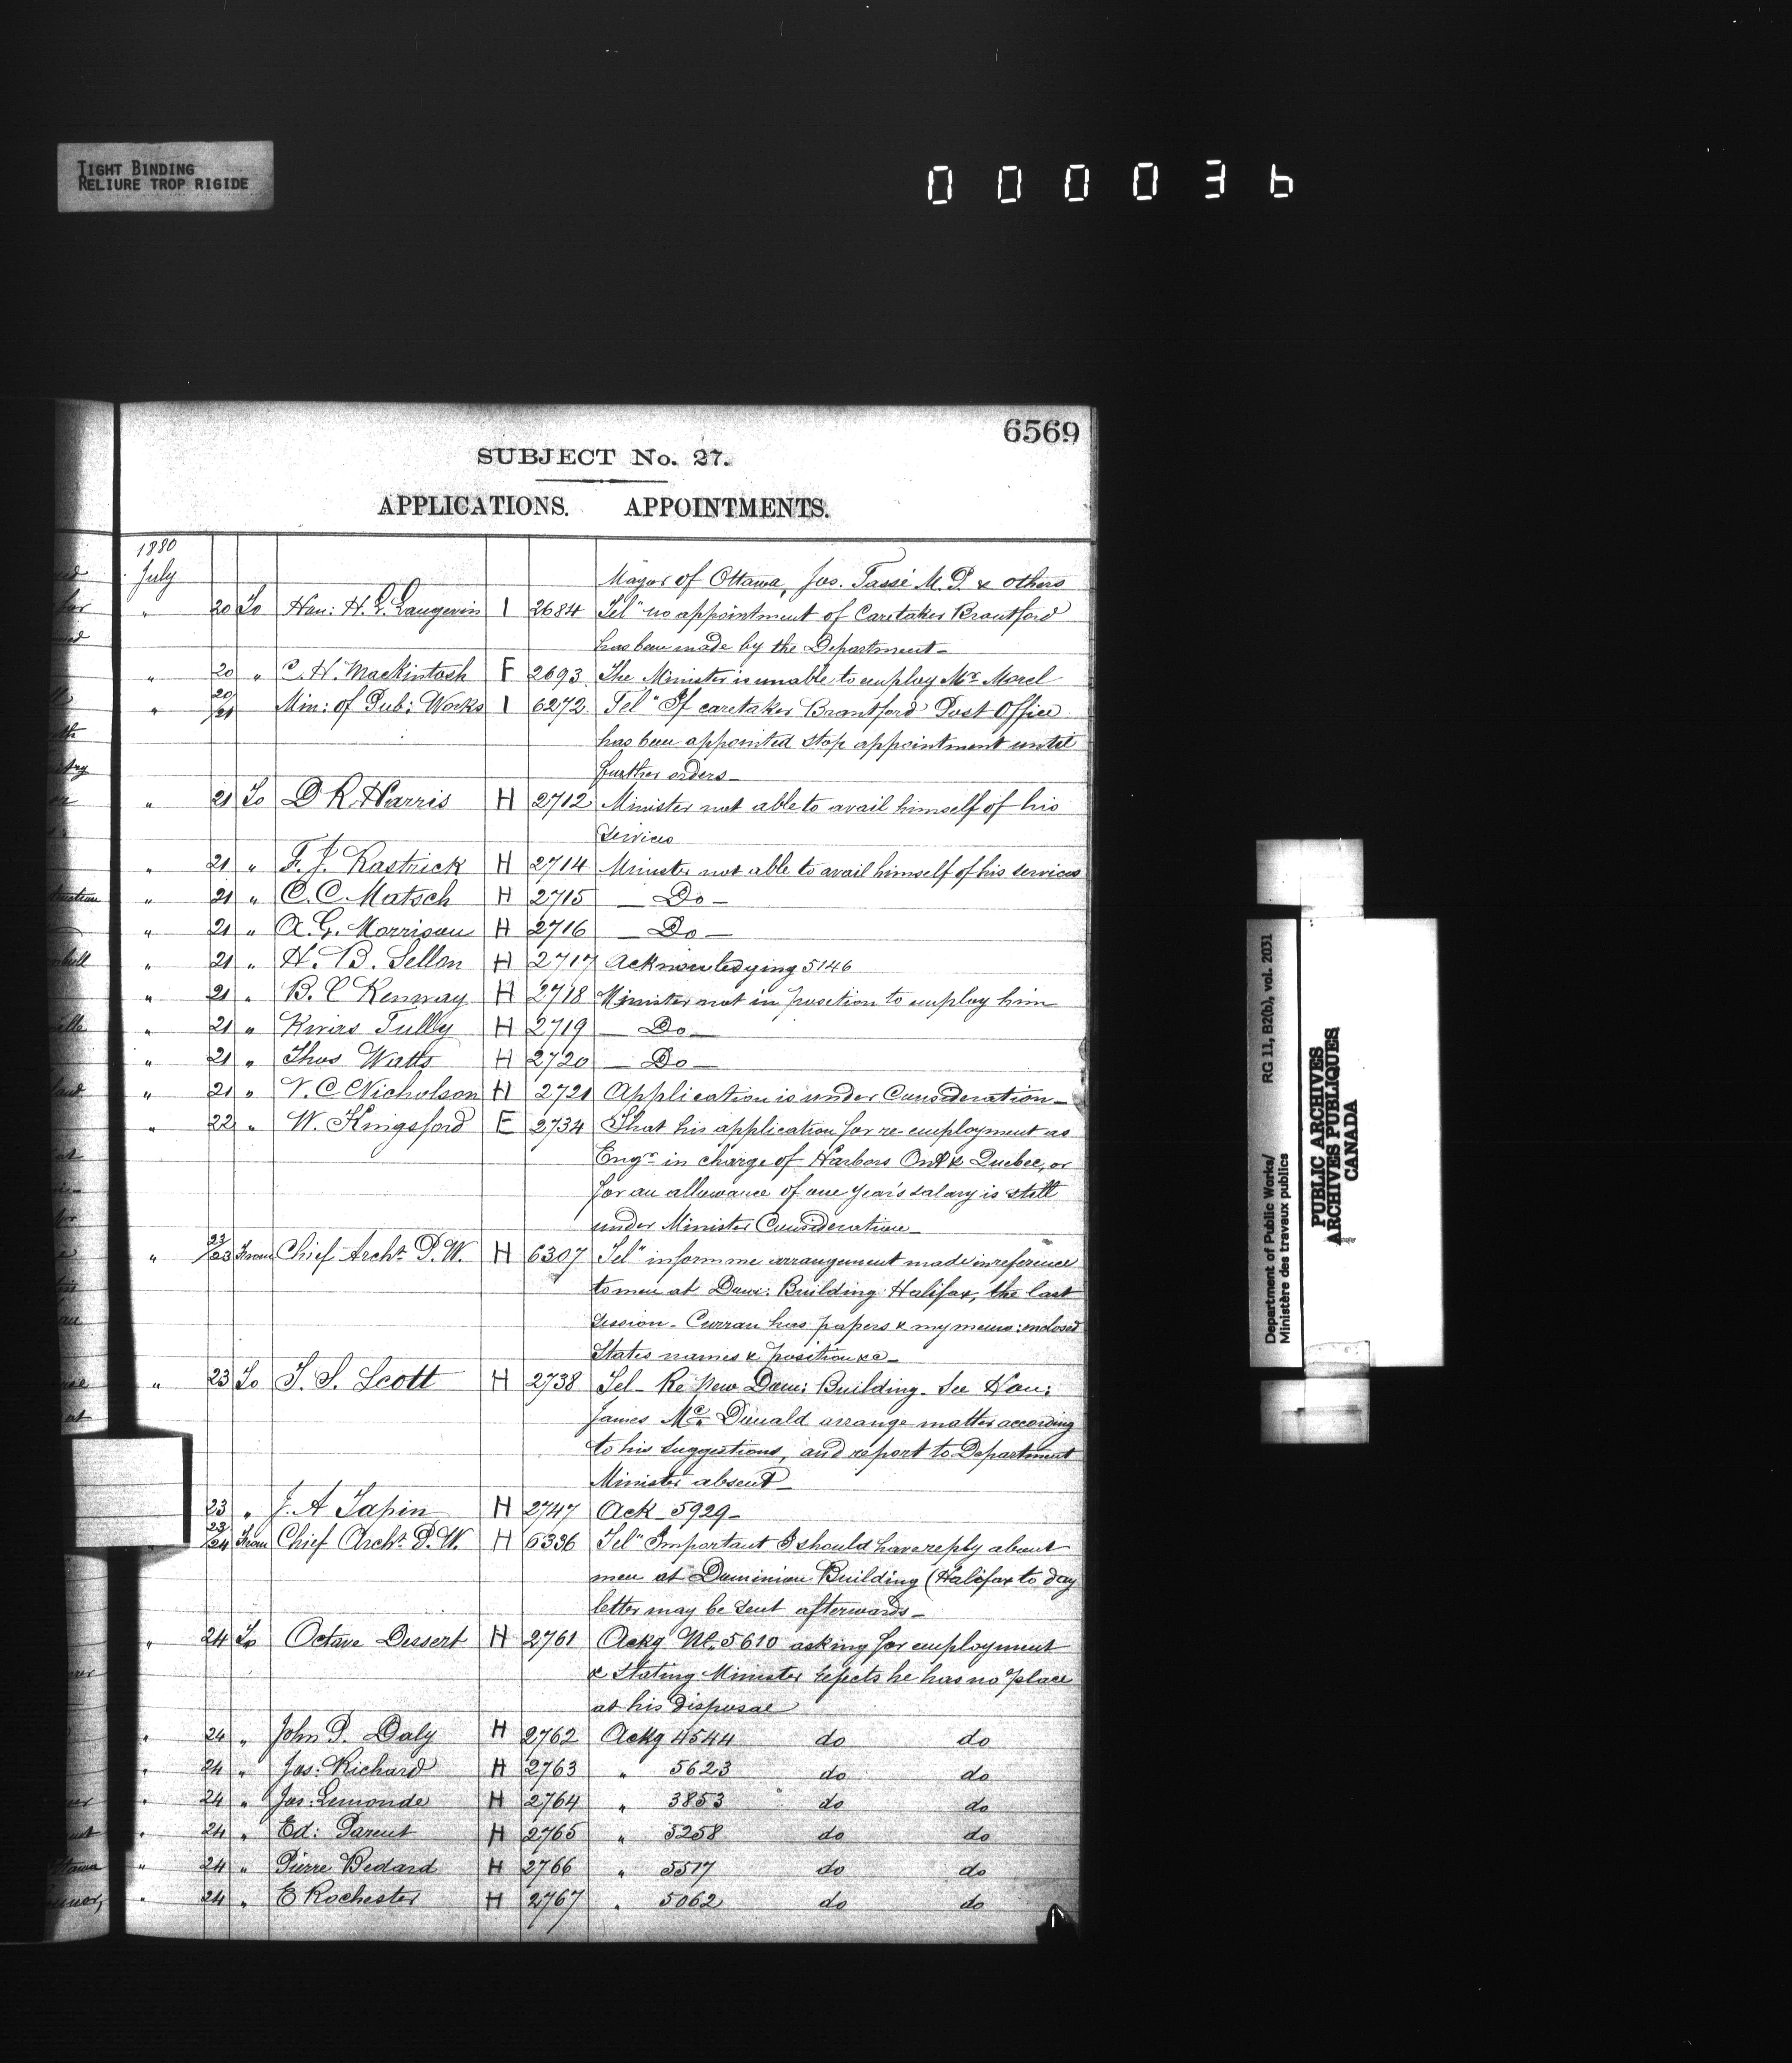 TIGHT BINDING
RELIURE TROP RIGIDE
000036
6569
SUBJECT No. 27.
APPLICATIONS. APPOINTMENTS.
1880
July Mayor of Ottawa, Jos. Tassé M.P. & others
" 20 To Hon: H. L. Langevin I 2684 Tel" no appointment of Caretaker Brantford
has been made by the Department_
" 20 " C. H. Mackintosh F 2693 The Minister is unable to employ Mr Morel
" 20/21 Min: of Pub: Works I 6272 Tel" If caretaker Brantford Post Office
has been appointed stop appointment until
further orders_
" 21 To D R Harris H 2712 Minister not able to avail himself of his
services
" 21 " F. J. Rastrick H 2714 Minister not able to avail himself of his services
" 21 " C. C. Matsch H 2715 _ Do _
" 21 " A. G. Morrison H 2716 _ Do _
" 21 " H. B. Sellon H 2717 Acknowledging 5146
" 21 " B. C Kenway H 2718 Minister not in position to employ him
" 21 " Kivas Tully H 2719 _ Do _
" 21 " Thos Watts H 2720 _ Do _
" 21 " V. C Nicholson H 2721 Application is under Consideration_
" 22 " W. Kingsford E 2734 That his application for re-employment as
Engr in charge of Harbors Ont & Quebec, or
for an allowance of one year's salary is still
under Minister Consideration_
" 23/23 From Chief Archt P. W. H 6307 Tel" inform me arrangement made in reference
to men at Dom: Building Halifax, the last
session_ Curran has papers & my memo: enclosed
States names & position &c_
" 23 To T. S. Scott H 2738 Tel_ Re New Dom: Building_ See Hon:
James Mc Donald arrange matter according
to his suggestions, and report to Department
Minister absent_
23 " J. A Tapin H 2747 Ack_ 5929_
23/24 From Chief Archt P. W. H 6336 Tel" Important I should have reply about
men at Dominion Building (Halifax to day
letter may be sent afterwards_
" 24 To Octave Dessert H 2761 Ackg No. 5610 asking for employment
& Stating Minister regrets he has no place
at his disposal
" 24 " John P. Daly H 2762 Ackg 4544 do do
" 24 " Jos: Richard H 2763 " 5623 do do
" 24 " Jos: Lemonde H 2764 " 3853 do do
" 24 " Ed: Parent H 2765 " 5258 do do
" 24 " Pierre Bedard H 2766 " 5517 do do
" 24 " E Rochester H 2767 " 5062 do do
Department of Public Works/ RG 11, B2(b), vol. 2031
Ministère des travaux publics
PUBLIC ARCHIVES
ARCHIVES PUBLIQUES
CANADA